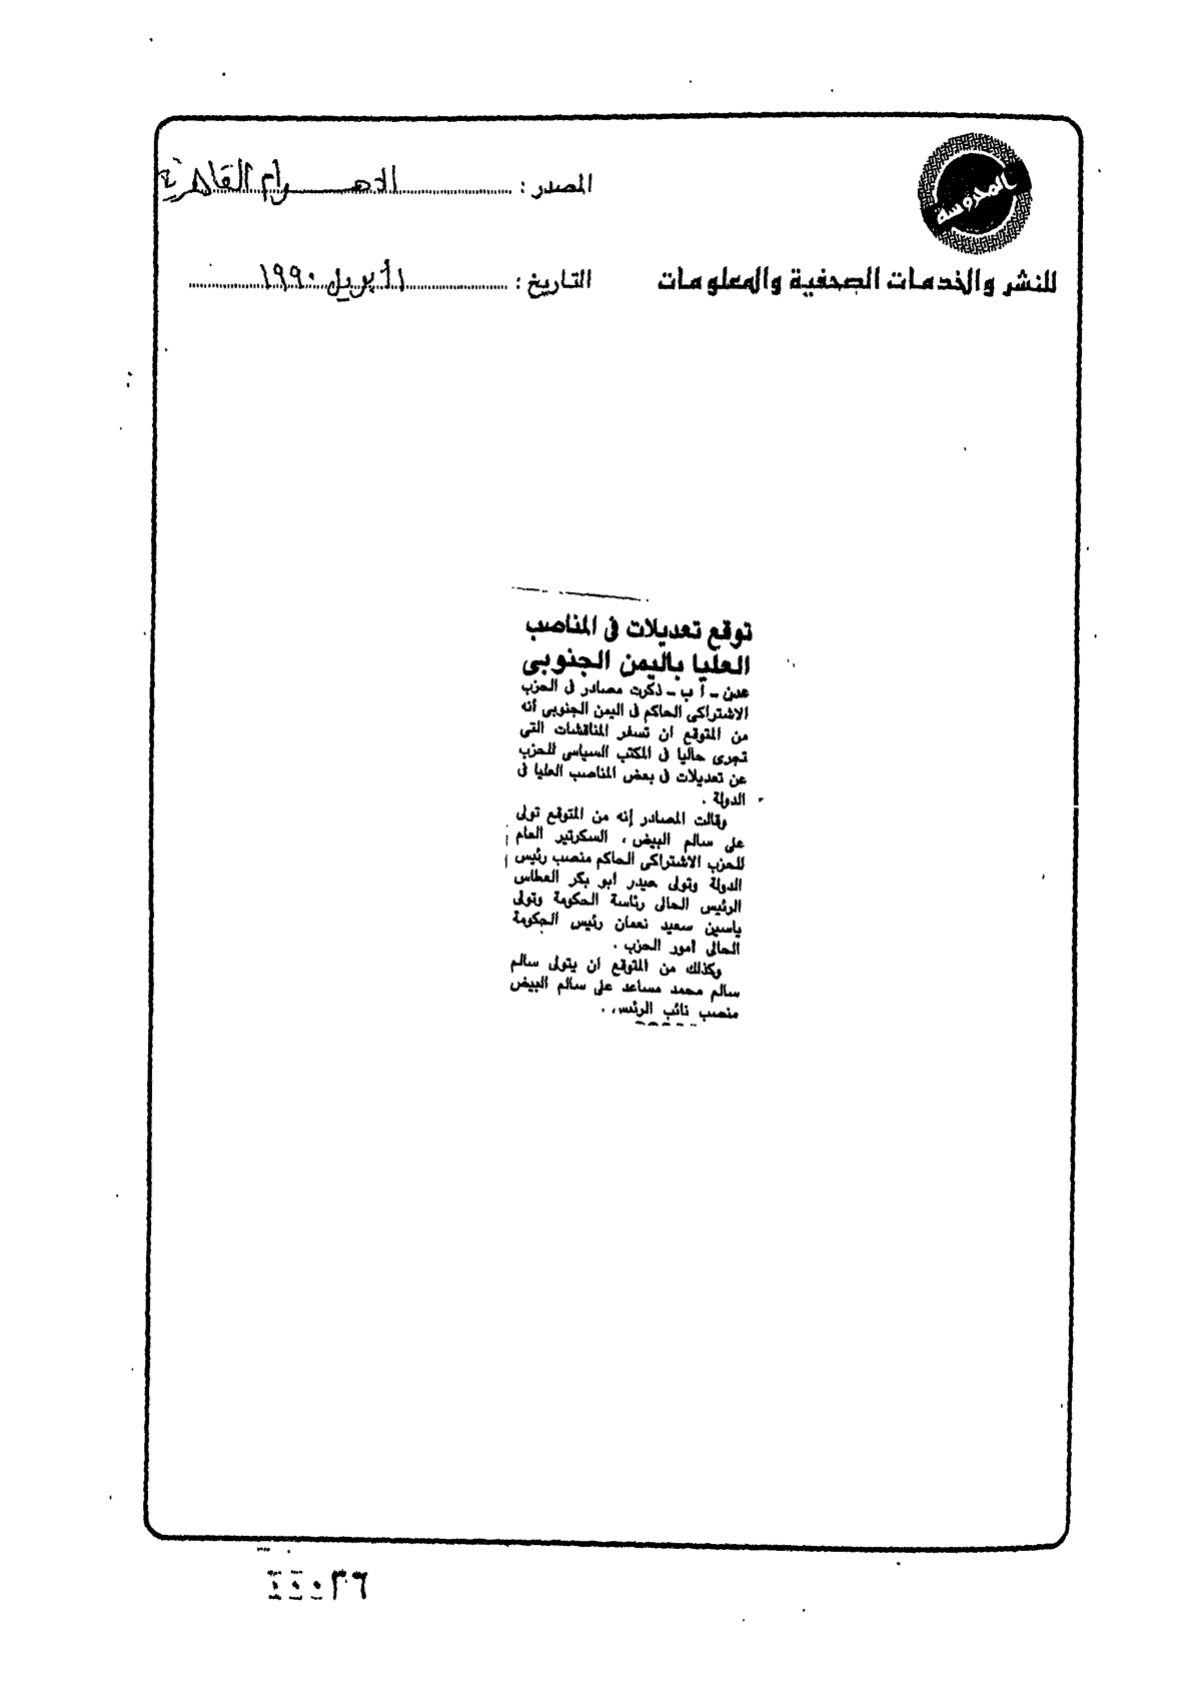 المحروسة
المصدر : الاهـرام القاهرية
للنشر والخدمات الصحفية والمعلومات
التاريخ : ١٩٩٠ أبريل
توقع تعديلات فى المناصب
العليا باليمن الجنوبى
عدن ـ أ ب ـ ذكرت مصادر فى الحزب
الاشتراكى الحاكم فى اليمن الجنوبى أنه
من المتوقع ان تسفر المناقشات التى
تجرى حاليا فى المكتب السياسى للحزب
عن تعديلات فى بعض المناصب العليا فى
الدولة .
وقالت المصادر إنه من المتوقع تولى
على سالم البيض ، السكرتير العام
للحزب الاشتراكى الحاكم منصب رئيس
الدولة وتولى حيدر ابو بكر العطاس
الرئيس الحالى رئاسة الحكومة وتولى
ياسين سعيد نعمان رئيس الحكومة
الحالى امور الحزب .
وكذلك من المتوقع ان يتولى سالم
سالم محمد مساعد على سالم البيض
منصب نائب الرئيس .